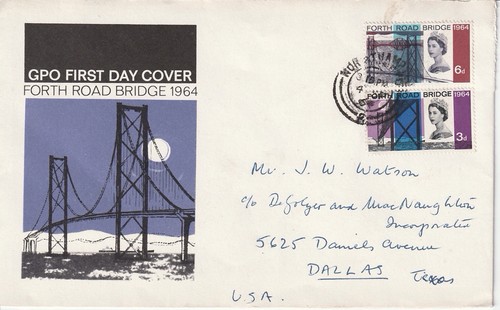 GPO FIRST DAY COVER
FORTH ROAD BRIDGE 1964
FORTH ROAD BRIDGE 1964
6d
FORTH ROAD BRIDGE 1964
3d
Mr. J. W. Watson
c/o DeGolyer and MacNaughton
Incorporated
5625 Daniels Avenue
DALLAS Texas
U.S.A.